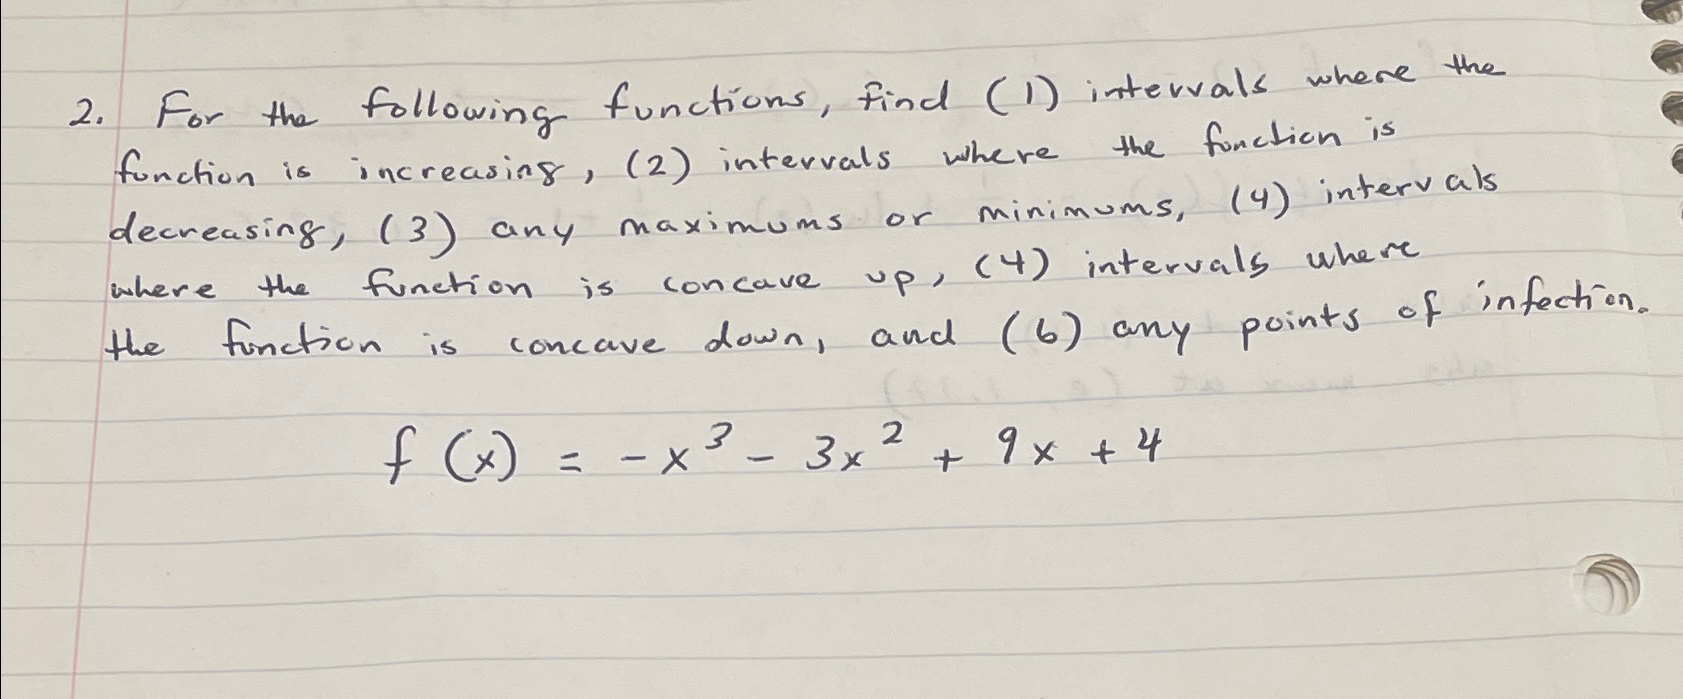 2. For the following functions, find (1) intervals where the
function is increasing, (2) intervals where the function is
decreasing, (3) any maximums or minimums, (4) intervals
where the function is concave up, (4) intervals where
the function is concave down, and (6) any points of infection.
f(x) = -x³ - 3x² + 9x + 4